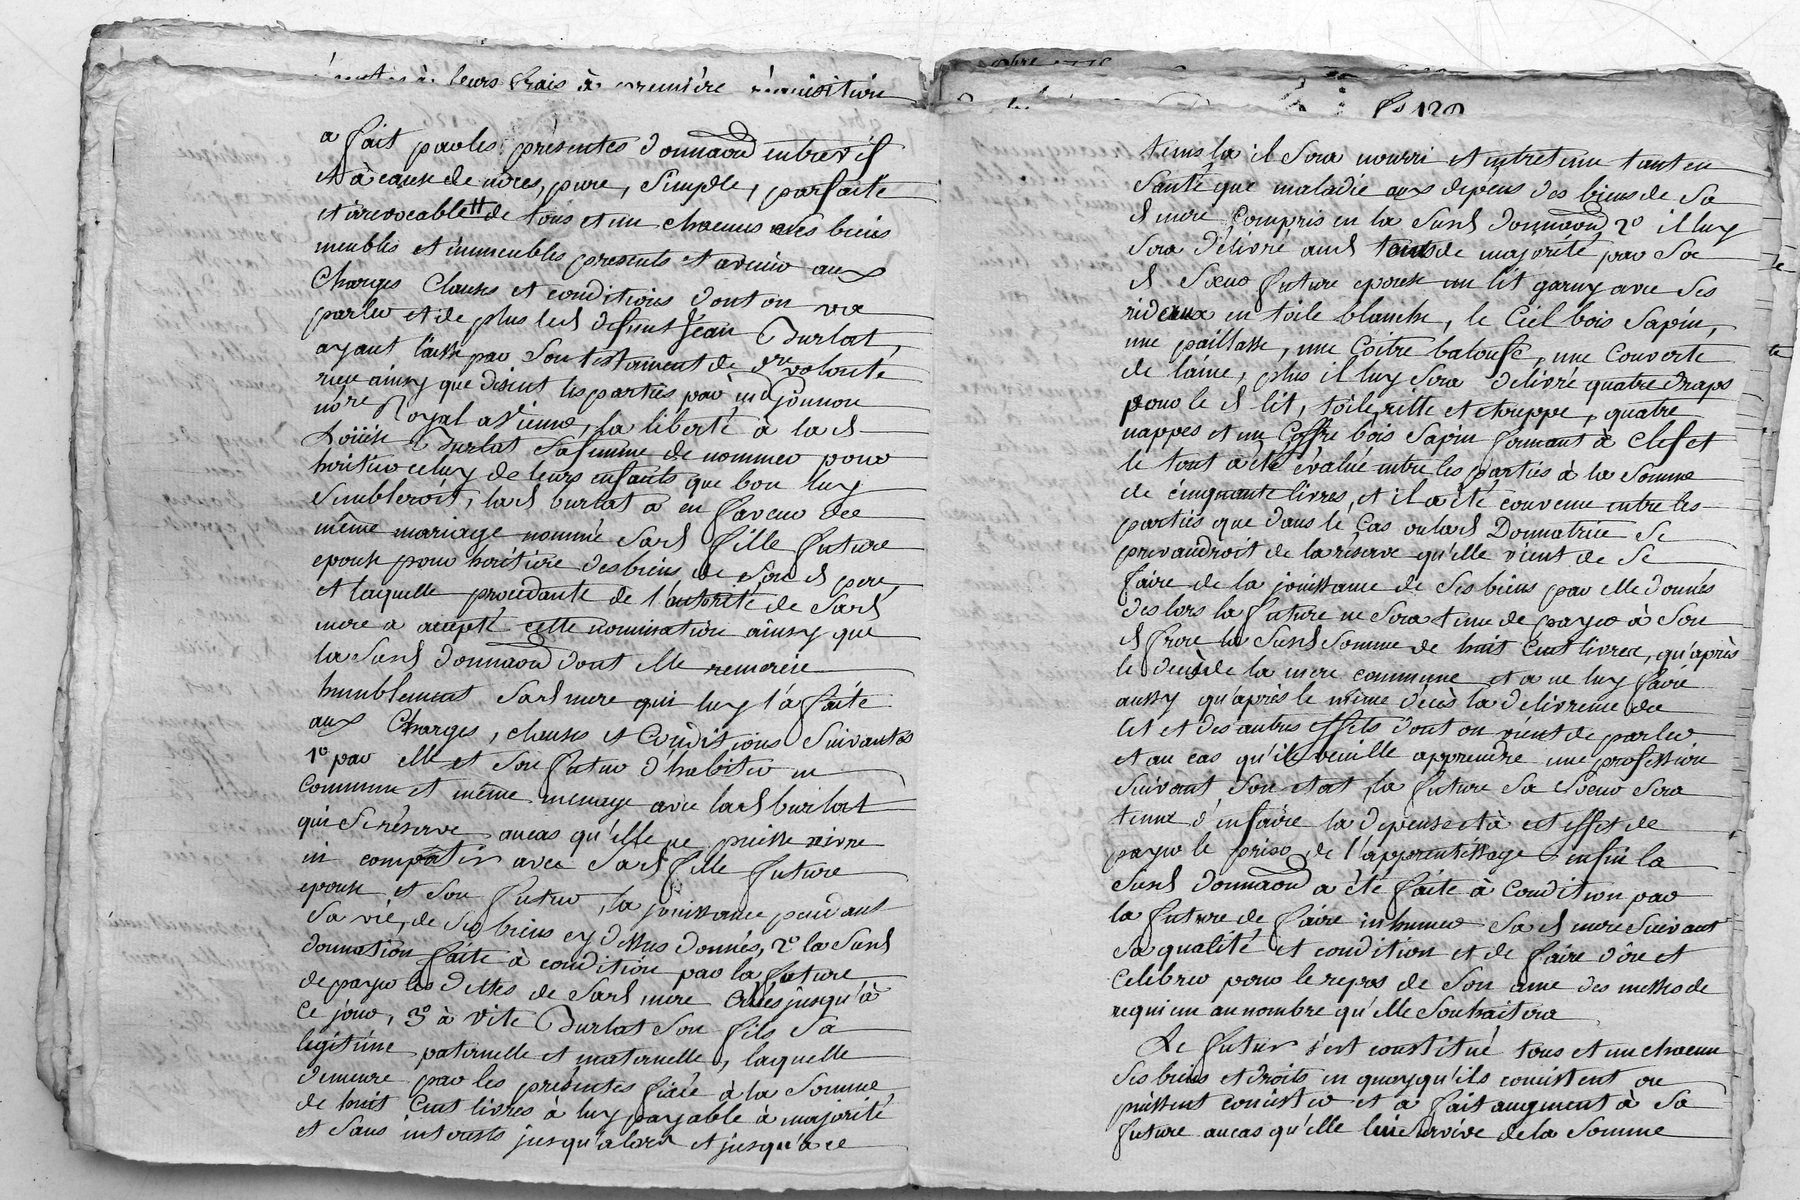 à leurs frais à première réquisition
a fait par les présentes donnaõn entre vif
et à cause de nôces, pure, simple, parfaite
et irrevocable de tous et un chacuns ses biens
meubles et immeubles presents et avenir aux
Charges Clauses et conditions dont on va
parler et de plus led defunt Jean Burlat
ayant laissé par son testament de dre volonté
rieu ainsy que disent les parties par
nore Royal a Vienne, la liberté à lad
Burlat sa femme de nommer pour
heritier celuy de leurs enfants que bon luy
sembleroit, lad burlat a en faveur du
même mariage nommé sad fille future
epouse pour héritière des biens de son d pere,
et laquelle procedante de l'autorité de sad
mere a accepté cette nomination ainsy que
la susd donnaõn dont elle remercie
humblement sad mere qui luy l'a faite
aux Charges, clauses et Conditions suivantes
1º par elle et son futur d'habiter en
commun et même menage avec lad burlat
qui se réserve aucas qu'elle ne puisse vivre
ni compatir avec sad fille future
epouse et son futur, la jouissance pendant
sa vie, de ses biens cy dessus donnés, 2º la susd
donnation faite à condition par la future
de payer les dettes de sad mere crées jusqu'à
ce jour, 3º à Vite Burlat son fils sa
legitime paternelle et maternelle, laquelle
demeure par les présentes fixée à la somme
de huit Cent livres à luy payable à majorité
et sans interests jusqu'alors et jusqu'à ce
fo 120
tems la il sera nourri et entretenu tant en
santé que maladie aux depens des biens de sa
d mere compris en la susd donnaõn 2º il luy
sera délivré aud tems de majorité par sa
d soeur future epouse un lit garny avec ses
rideaux en toile blanche, le Ciel bois sapin,
une paillasse, une Coitre balouse, une couverte
de laine, plus il luy sera delivré quatre draps
pour le d lit, toile ritte et etouppe, quatre
nappes et un Coffre bois sapin fermant à clef et
le tout a été évalué entre les parties à la somme
de cinquante livres, et il a été convenu entre les
parties que dans le cas ou lad Donnatrice se
prevaudroit de la réserve qu'elle vient de se
faire de la jouissance de ses biens par elle donnés
des lors la future ne sera tenue de payer à son
d frere la susd somme de huit Cent livres, qu'après
le decès de la mere commune et a ne luy faire
aussy qu'après le même décès la délivrence du
lit et des autres effets dont on vient de parler
et au cas qu'il veuille apprendre une profession
suivant son etat, la future sa soeur sera
tenue d'en faire la depense et à cet effet de
payer le prix de l'apprentissage enfin la
susd donnaõn a été faite à Condition par
la future de faire inhumer sa d mere suivant
sa qualité et condition et de faire dire et
Celebrer pour le repos de son ame des messes de
requiem au nombre qu'elle souhaitera
Le futur s'est constitué tous et un chacun
ses biens et droits en quoy qu'ils consistent ou
puissent consister et a fait augment à sa
future aucas qu'elle luy survive de la somme